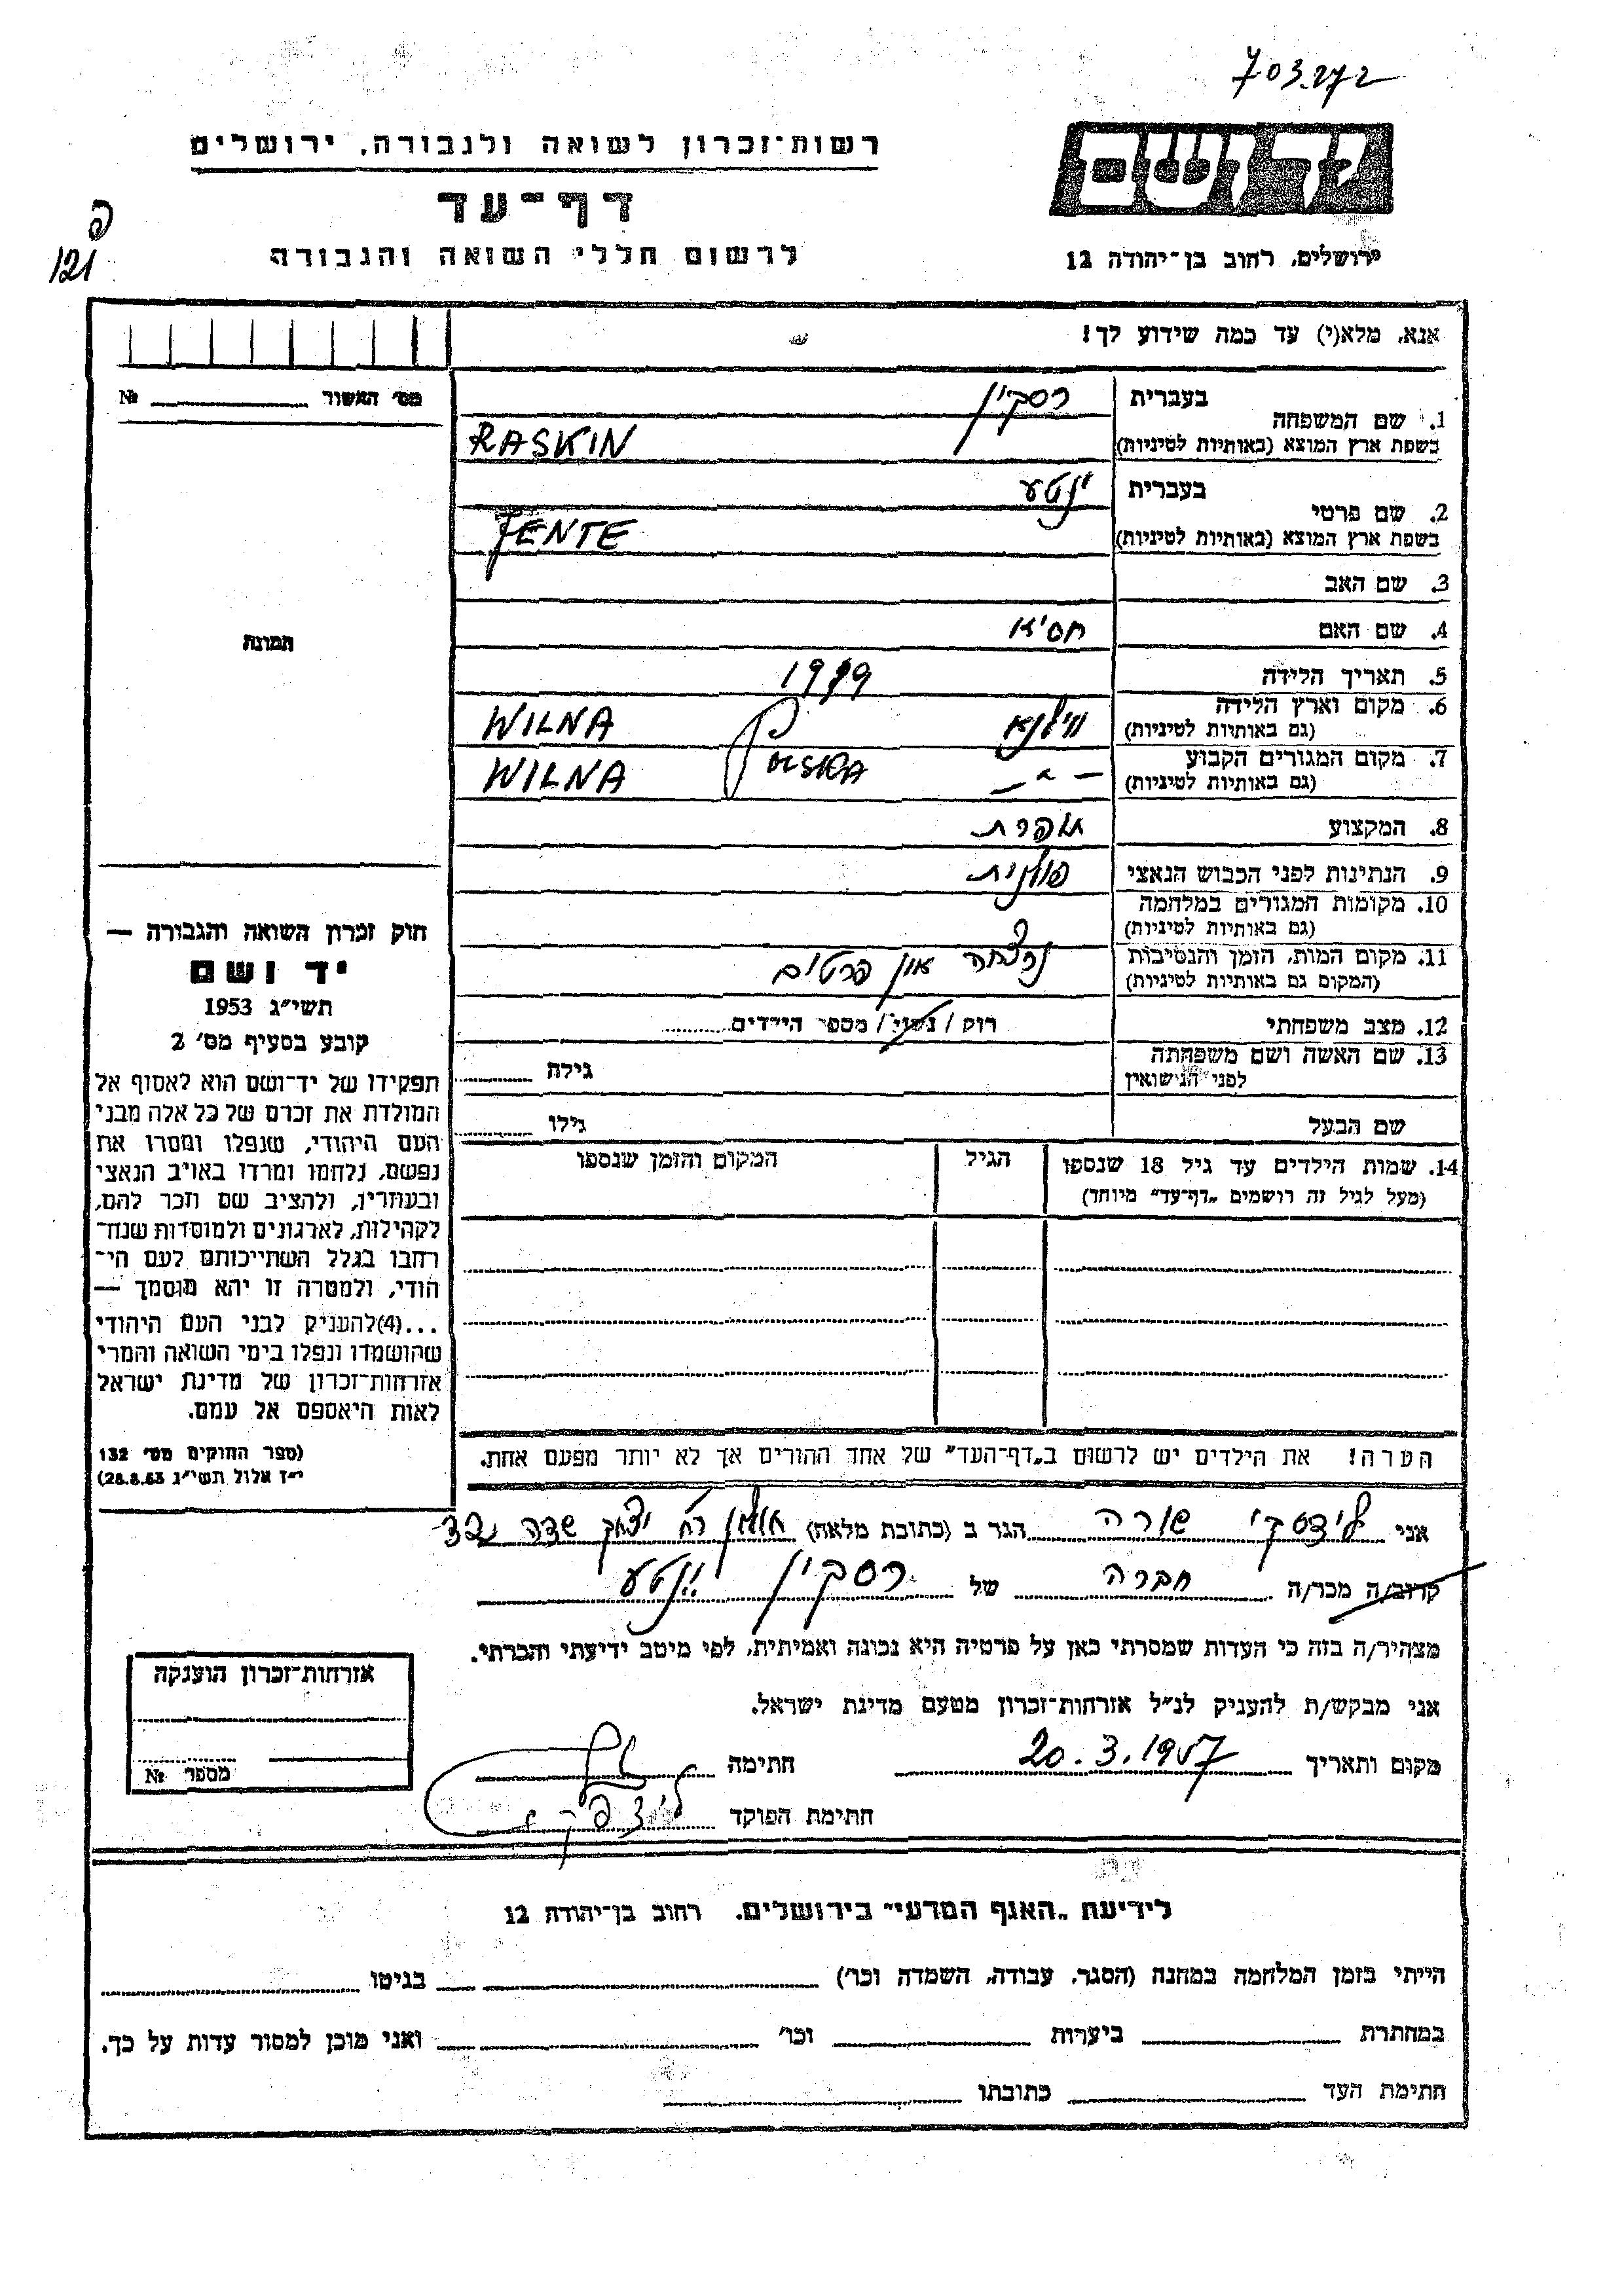 703.272
רשות־זכרון לשואה ולגבורה, ירושלים
יד ושם
דף־עד
פ
121
לרשום חללי השואה והגבורה
ירושלים, רחוב בן־יהודה 12
אנא, מלא(י) עד כמה שידוע לך!
מס׳ האשור № 
1. שם המשפחה
בעברית רסקין
בשפת ארץ המוצא (באותיות לטיניות) RASKIN
2. שם פרטי
בעברית ינטע
בשפת ארץ המוצא (באותיות לטיניות) JENTE
3. שם האב
4. שם האם חסיא
תמונה
5. תאריך הלידה 1919
6. מקום וארץ הלידה
(גם באותיות לטיניות) ווילנא POLSKA WILNA
7. מקום המגורים הקבוע
(גם באותיות לטיניות) — " — WILNA
8. המקצוע תופרת
9. הנתינות לפני הכבוש הנאצי פולנית
10. מקומות המגורים במלחמה
(גם באותיות לטיניות) ?
11. מקום המות, הזמן והנסיבות
(המקום גם באותיות לטיניות) נרצחה אין פרטים
12. מצב משפחתי רוק / נשוי / מספר הילדים
13. שם האשה ושם משפחתה
לפני הנישואין גילה
שם הבעל גילו
14. שמות הילדים עד גיל 18 שנספו הגיל המקום והזמן שנספו
(מעל לגיל זה רושמים „דף־עד״ מיוחד)
הערה! את הילדים יש לרשום ב„דף־העד״ של אחד ההורים אך לא יותר מפעם אחת.
חוק זכרון השואה והגבורה —
יד ושם
תשי״ג 1953
קובע בסעיף מס׳ 2
תפקידו של יד־ושם הוא לאסוף אל
המולדת את זכרם של כל אלה מבני
העם היהודי, שנפלו ומסרו את
נפשם, נלחמו ומרדו באויב הנאצי
ובעוזריו, ולהציב שם וזכר להם,
לקהילות, לארגונים ולמוסדות שנח־
רחבו בגלל השתייכותם לעם הי־
הודי, ולמטרה זו יהא מוסמך —
...(4)להעניק לבני העם היהודי
שהושמדו ונפלו בימי השואה והמרי
אזרחות־זכרון של מדינת ישראל
לאות היאספם אל עמם.
(ספר החוקים מס׳ 132
י״ז אלול תשי״ג 28.8.53)
אני לידסקי שורה הגר ב (כתובת מלאה) חולון רח׳ יצחק שדה
קרוב/ה מכר/ה חברה של רסקין ינטע
מצהיר/ה בזה כי העדות שמסרתי כאן על פרטיה היא נכונה ואמיתית, לפי מיטב ידיעתי והכרתי.
אני מבקש/ת להעניק לנ״ל אזרחות־זכרון מטעם מדינת ישראל.
מקום ותאריך 20.3.1957 חתימה
חתימת הפוקד
אזרחות־זכרון הוענקה
מספר №
לידיעת „האגף המדעי״ בירושלים, רחוב בן־יהודה 12
הייתי בזמן המלחמה במחנה (הסגר, עבודה, השמדה וכו׳) בגיטו
במחתרת ביערות וכו׳ ואני מוכן למסור עדות על כך.
חתימת העד כתובתו